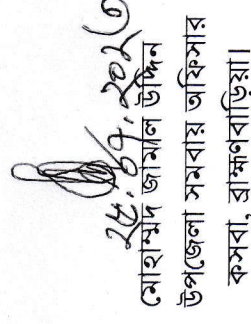 ২৫.০৭.২০২৩
মোহাম্মদ জামাল উদ্দিন
উপজেলা সমবায় অফিসার
কসবা, ব্রাহ্মণবাড়িয়া।